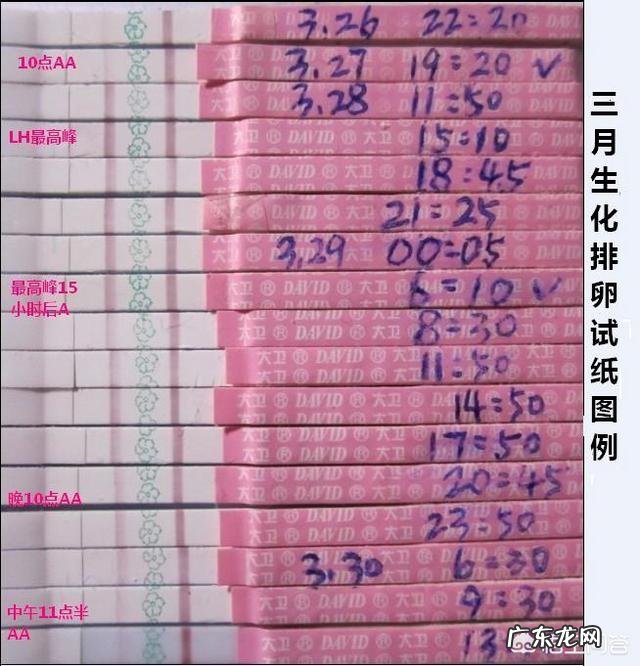 3.26 22:20
10点AA
3.27 19:20 ✓
3.28 11:50
LH最高峰
15:10
18:45
21:25
3.29 00:05
最高峰15
小时后A
6:10 ✓
8:30
11:50
14:50
17:50
晚10点AA
20:45
23:50
3.30 6:30
9:30
中午11点半
AA
13
三月生化排卵试纸图例
大卫 ® DAVID ® 大卫 ® DAVID ® 大卫
广东龙网